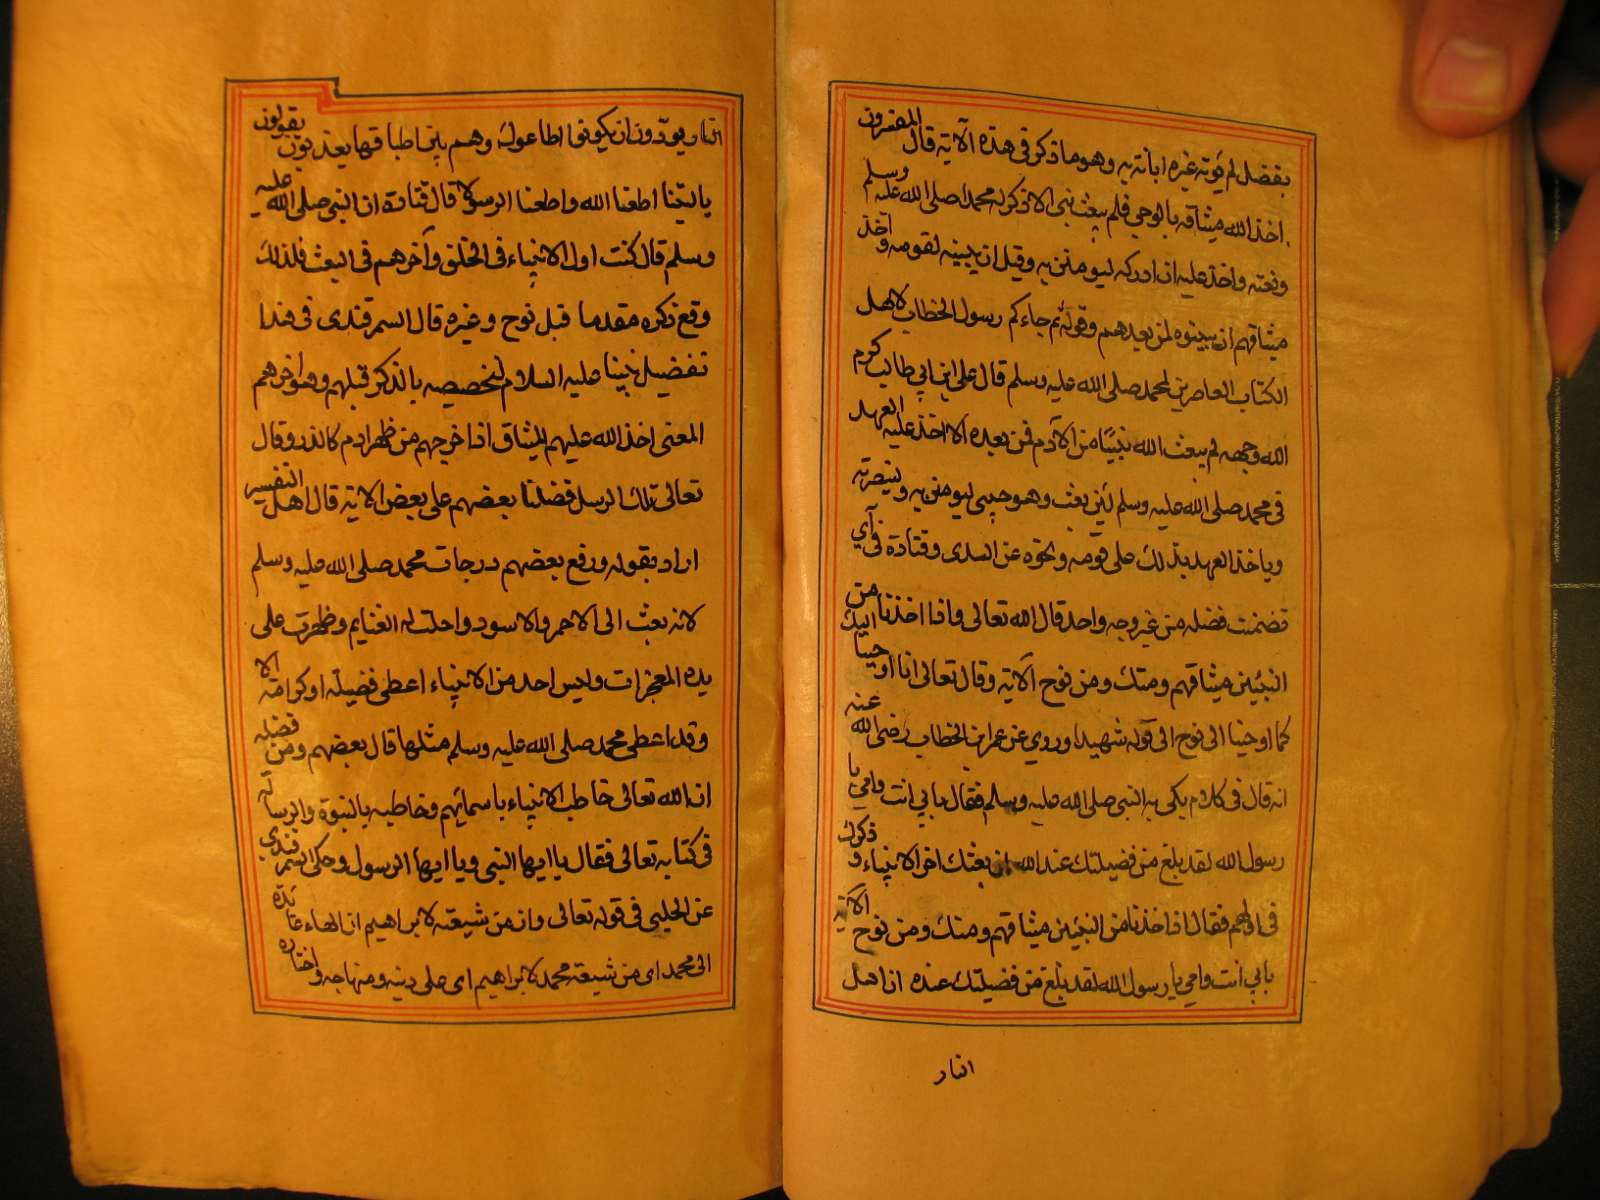 بفضل لم يؤته غيره ابانه به وهو ما ذكر في هذه الآية قال المفسرون
اخذ الله ميثاقه بالوحي فلم يبعث نبي الا ذكر له محمدا صلى الله عليه وسلم
ونعته واخذ عليه ان ادركه ليومنن به وقيل ان يبينه لقومه واخذ
ميثاقهم ان يبينوه لمن بعدهم وقوله ثم جاءكم رسول الخطاب لاهل
الكتاب المعاصرين لمحمد صلى الله عليه وسلم قال علي ابن ابي طالب كرم
الله وجهه لم يبعث الله نبيا من الآدم فمن بعده الا اخذ عليه العهد
في محمد صلى الله عليه وسلم لئن بعث وهو حيي ليومنن به ولينصرنه
وياخذ العهد بذلك على قومه ونحوه عن السدى وقتادة في آي
تضمنت فضله من غير وجه واحد قال الله تعالى واذا اخذنا من
النبيين ميثاقهم ومنك ومن نوح الآية وقال تعالى انا اوحينا اليك
كما اوحينا الى نوح الى قوله شهيدا وروي عن عمر ابن الخطاب رضى الله عنه
انه قال في كلام بكى به النبي صلى الله عليه وسلم فقال بابي انت وامي يا
رسول الله لقد بلغ من فضيلتك عند الله ان بعثك اخر الانبياء وذكرك
في اولهم فقال اذا اخذنا من النبيين ميثاقهم ومنك ومن نوح الآية
بابي انت وامي يا رسول الله لقد بلغ من فضيلتك عنده ان اهل
النار
النار يودون ان يكونوا اطاعوك وهم بين اطباقها يعذبون يقولون
يا ليتنا اطعنا الله واطعنا الرسولا قال قتادة ان النبي صلى الله عليه
وسلم قال كنت اول الانبياء في الخلق وآخرهم في البعث فلذلك
وقع ذكره مقدما قبل نوح وغيره قال السمرقندى في هذا
تفضيل نبينا عليه السلام لتخصيصه بالذكر قبلهم وهو اخرهم
المعنى اخذ الله عليهم الميثاق اذ اخرجهم من ظهر ادم كالذر وقال
تعالى تلك الرسل فضلنا بعضهم على بعض الاية قال اهل التفسير
اراد بقوله ورفع بعضهم درجات محمد صلى الله عليه وسلم
لانه بعث الى الاحمر والاسود واحلت له الغنايم وظهرت على
يده المعجزات وليس احد من الانبياء اعطى فضيلة او كرامة الا
وقد اعطى محمد صلى الله عليه وسلم مثلها قال بعضهم ومن فضله
ان الله تعالى خاطب الانبياء باسمائهم وخاطبه بالنبوة والرسالة
في كتابه تعالى فقال يا ايها النبي ويا ايها الرسول وحكى السمرقندي
عن الحلبي في قوله تعالى وان من شيعته لابراهيم ان الهاء عائدة
الى محمد اى من شيعة محمد لابراهيم اى على دينه ومنهاجه واختاره